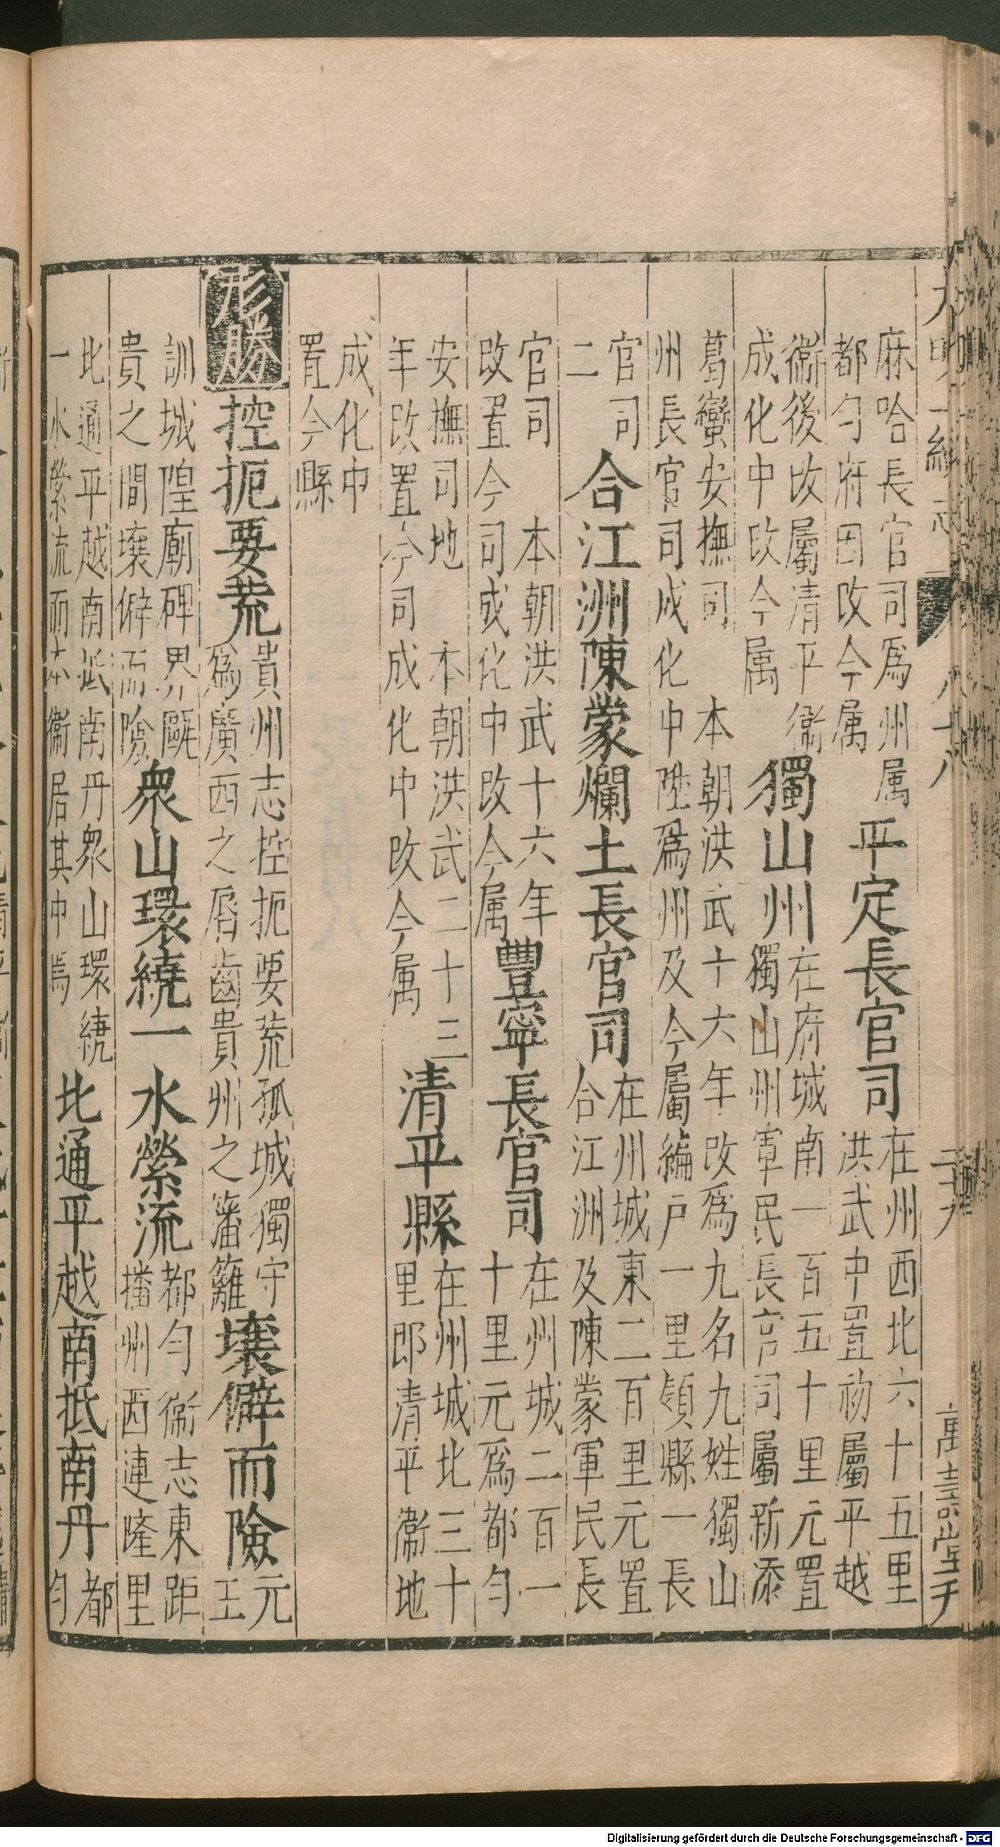 大明一統志 卷八十八 萬壽堂刊
麻哈長官司爲州属
都勻府因改今属
平定長官司
在州西北六十五里
洪武中置初屬平越
衞後改屬清平衞
成化中改今属
獨山州
在府城南一百五十里元置
獨山州軍民長官司屬新添
葛蠻安撫司 本朝洪武十六年改爲九名九姓獨山
州長官司成化中陞爲州及今屬編戸一里領縣一長
官司
二
合江洲陳蒙爛土長官司
在州城東二百里元置
合江洲及陳蒙軍民長
官司 本朝洪武十六年
改置今司成化中改今属
豐寧長官司
在州城二百一
十里元爲都勻
安撫司地 本朝洪武二十三
年改置今司成化中改今属
清平縣
在州城北三十
里即清平衞地
成化中
置今縣
形勝 控扼要荒
貴州志控扼要荒孤城獨守
爲廣西之唇齒貴州之藩籬
壤僻而險
元
王
訓城隍廟碑界厥
貴之間壤僻而險
衆山環繞一水縈流
都勻衞志東距
播州西連隆里
北通平越南抵南丹衆山環繞
一水縈流而本衞居其中焉
北通平越南抵南丹
都
勻
Digitalisierung gefördert durch die Deutsche Forschungsgemeinschaft - DFG